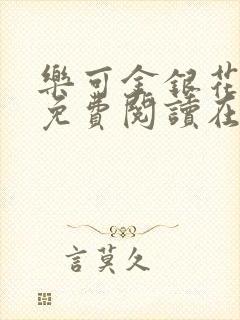 樂可金銀花
免費閱讀在
言莫久